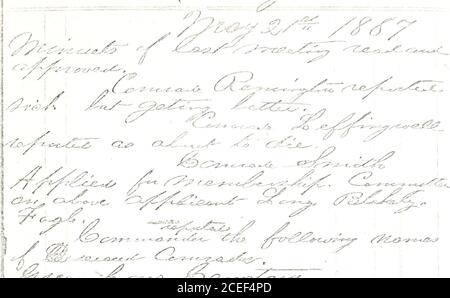 May 21st 1887
Minuets of last meeting read and
approved.
Comrade Remington reported
sick but getting better.
Comrade Leffingwell
reported as about to die.
Comrade Smith
Applied for membership. Committee
on above applicant Long Blakely.
Fogle.
reported
Commander the following names
of deceased Comrades.
2CEEF4PD